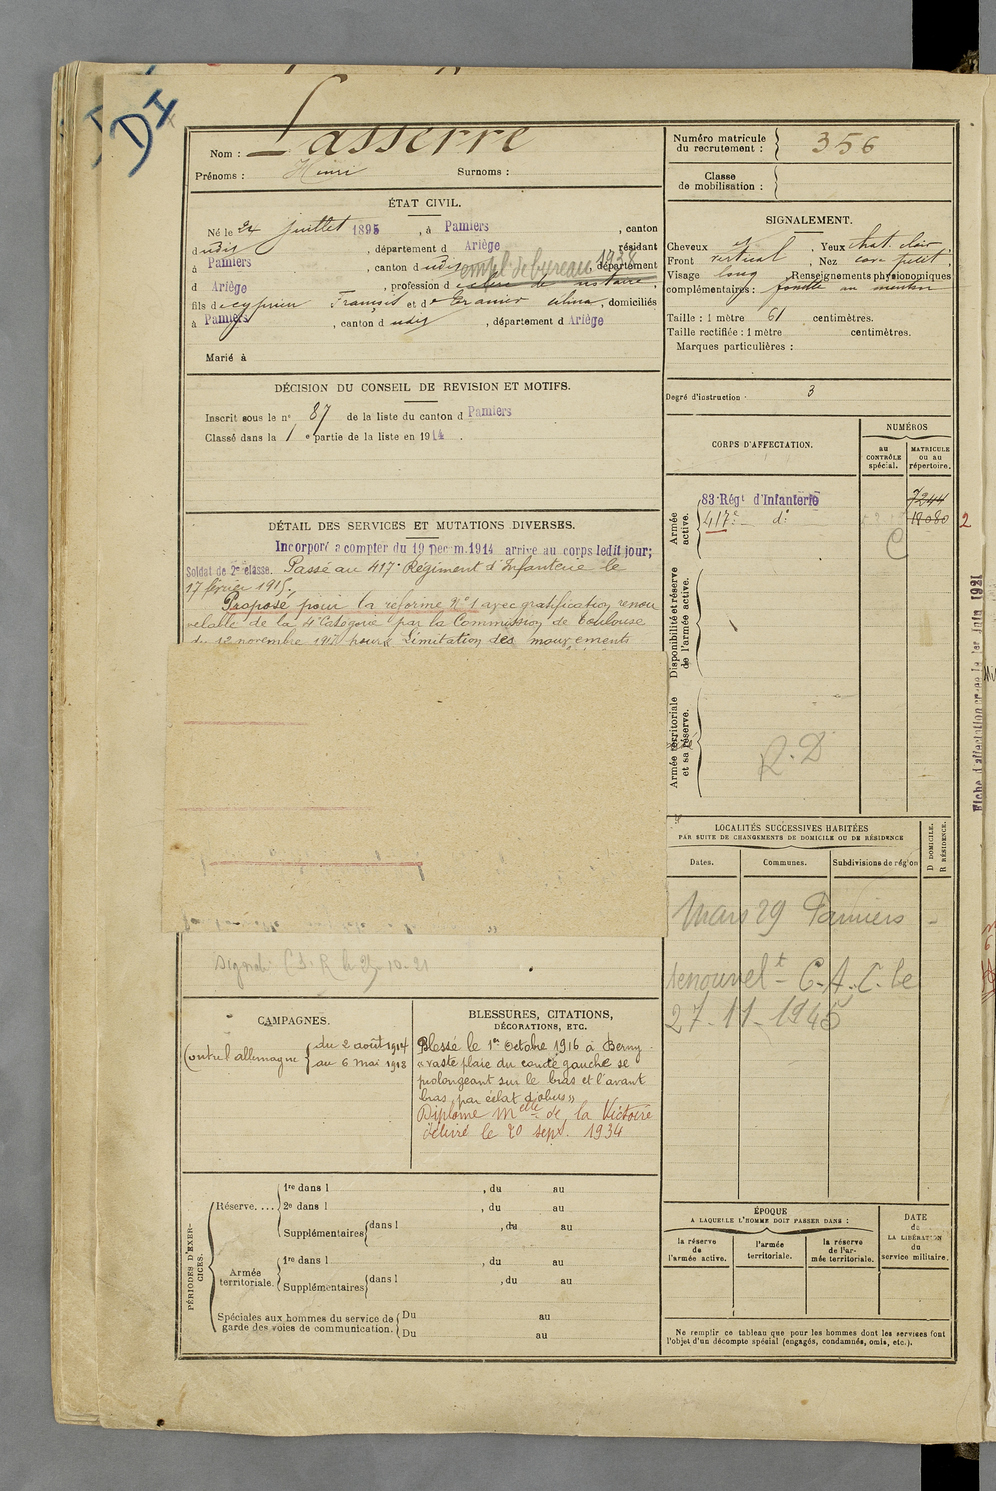 DI
Nom : Lasserre
Prénoms : Henri Surnoms :
ÉTAT CIVIL.
Né le 24 juillet 1895, à Pamiers, canton
dudit, département d Ariège résidant
à Pamiers, canton dudit empl. de bureau 1938 département
d Ariège, profession d clerc de notaire,
fils de cyprien François et de Granier, domiciliés
à Pamiers, canton dudit, département d Ariège
Marié à
DÉCISION DU CONSEIL DE REVISION ET MOTIFS.
Inscrit sous le n° 87 de la liste du canton d Pamiers
Classé dans la 1e partie de la liste en 1914.
DÉTAIL DES SERVICES ET MUTATIONS DIVERSES.
Incorporé a compter du 19 Decem. 1914 arrivé au corps ledit jour;
Soldat de 2e classe. Passé au 417e Régiment d'Infanterie le
17 février 1915.
Proposé pour la réforme N°1 avec gratification renou
velable de la 4e Catégorie par la Commission de Toulouse
du 12 novembre 1917 pour « Limitation des mouvements
CAMPAGNES.
Contre l'allemagne { du 2 août 1914
au 6 mai 1918
BLESSURES, CITATIONS,
DÉCORATIONS, ETC.
Blessé le 1er octobre 1916 à Berny
« vaste plaie du coude gauche se
prolongeant sur le bras et l'avant
bras par éclat d'obus »
Diplome Mlle de la Victoire
délivré le 20 sept. 1934
PÉRIODES D'EXERCICES.
Réserve....
1re dans l , du au
2e dans l , du au
Supplémentaires { dans l , du au
Armée territoriale.
1re dans l , du au
Supplémentaires { dans l , du au
Spéciales aux hommes du service de garde des voies de communication. { Du au
Du au
Numéro matricule du recrutement : 356
Classe de mobilisation :
SIGNALEMENT.
Cheveux , Yeux chat. clair
Front vertical, Nez cave petit
Visage long Renseignements physionomiques
complémentaires : fossette au menton
Taille : 1 mètre 61 centimètres.
Taille rectifiée : 1 mètre centimètres.
Marques particulières :
Degré d'instruction 3
CORPS D'AFFECTATION.
NUMÉROS
au CONTRÔLE spécial.
MATRICULE ou au répertoire.
Armée active.
83 Régt d'Infanterie 7244
417e — d° 18080 2
C
Disponibilité et réserve de l'armée active.
Armée territoriale et sa réserve.
R.D
LOCALITÉS SUCCESSIVES HABITÉES
PAR SUITE DE CHANGEMENTS DE DOMICILE OU DE RÉSIDENCE
Dates. Communes. Subdivisions de région D DOMICILE. R RÉSIDENCE.
Mars 29 Pamiers -
renouvelt - C.A.C. le
27-11-1945
ÉPOQUE
A LAQUELLE L'HOMME DOIT PASSER DANS :
la réserve de l'armée active.
l'armée territoriale.
la réserve de l'armée territoriale.
DATE de LA LIBÉRATION du service militaire.
Ne remplir ce tableau que pour les hommes dont les services font
l'objet d'un décompte spécial (engagés, condamnés, omis, etc.).